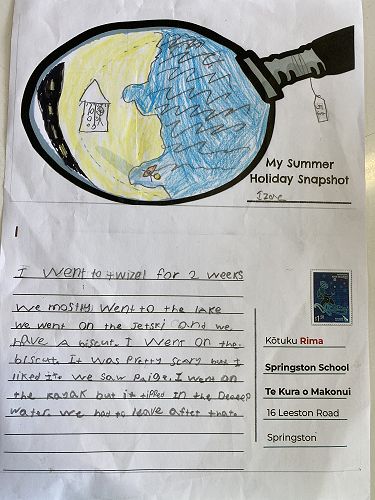 My Summer
Holiday Snapshot
I went to twizel for 2 weeks
we mostly went to the lake
we went on the Jetski and we
have a biscut. I went on the
biscut. It was pretty scary but I
liked it. we saw Paige. I went on
the kayak but it tipped in the Deeeep
water. we had to leave after that.
Kōtuku Rima
Springston School
Te Kura o Makonui
16 Leeston Road
Springston